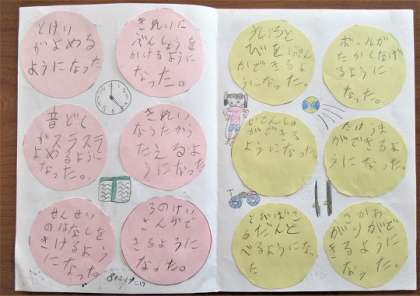 とけい
がよめる
ようになった。
きれいに
べんきょうを
かけるように
なった。
音どく
がスラスラ
よめるように
なった。
きれい
なうたがう
たえるよ
うになった。
せんせい
のはなしを
きけるよう
になった。
きるように
なった。
かできるように
なった。
ボールが
たかくなげ
るように
なった。
じてんしゃ
ができる
ようになった。
たけうま
ができるよ
うになった。
とびばこ
がだんだんと
べるようになっ
た
さかあ
がりができ
るように
なった。